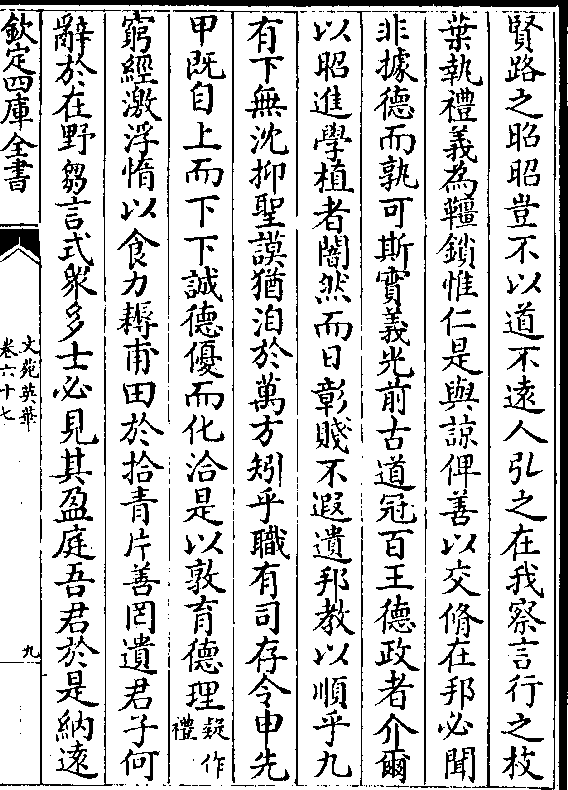 賢路之昭昭豈不以道不遠人弘之在我察言行之枝
葉執禮義為韁鎖惟仁是與諒俾善以交脩在邦必聞
非據德而孰可斯實義光前古道冠百王德政者介爾
以昭進學植者闇然而日彰賤不遐遺邦教以順乎九
有下無沈抑聖謨猶洎於萬方矧乎職有司存令申先
甲既自上而下下誠德優而化洽是以敦育德理疑作禮
窮經激浮惰以食力耨甫田於拾青片善罔遺君子何
辭於在野芻言式衆多士必見其盈庭吾君於是納遠
欽定四庫全書
文苑英華
卷六十七
九